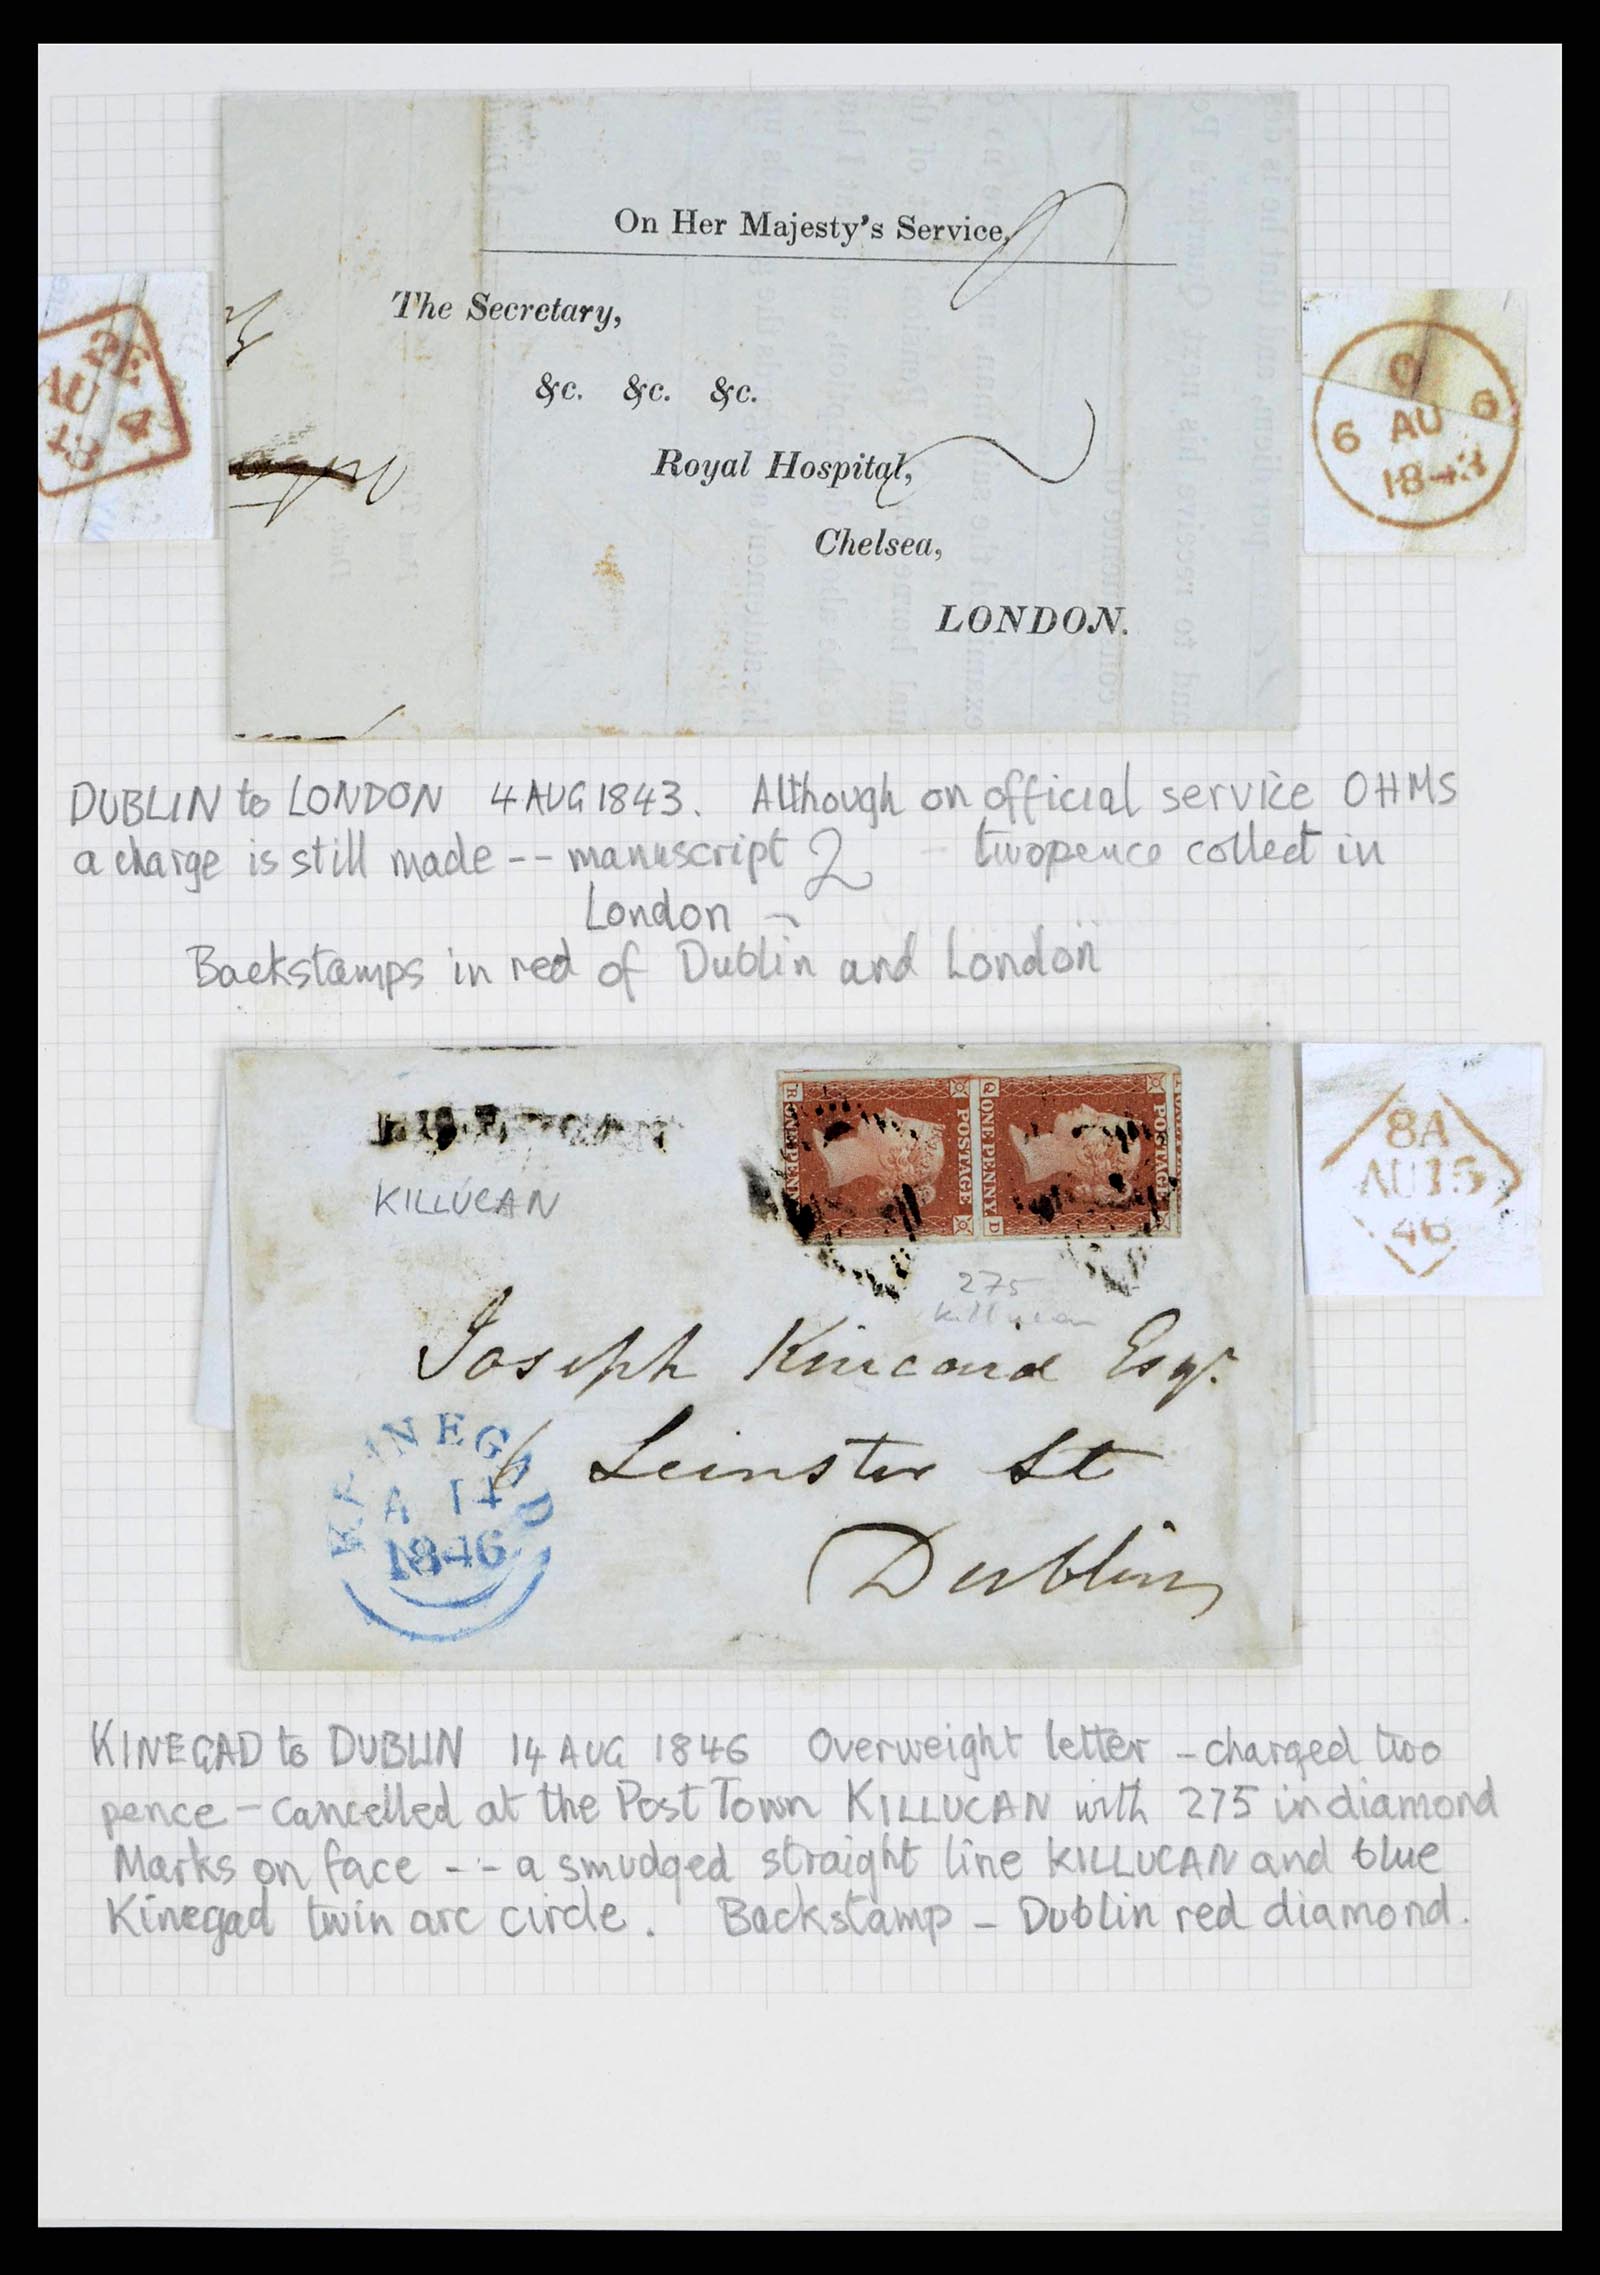 On Her Majesty's Service,
The Secretary,
&c. &c. &c.
Royal Hospital,
Chelsea,
LONDON.
2
AU
4
43
6 AU 6
1843
DUBLIN to LONDON 4 AUG 1843. Although on official service OHMS
a charge is still made -- manuscript 2 - twopence collect in
London
Backstamps in red of Dublin and London
KILLUCAN
R ONE PENNY POSTAGE
Q ONE PENNY D POSTAGE
275
Killucan
8A
AU 15
46
Joseph Kincaid Esqr.
6 Leinster St
Dublin
KINNEGAD
A 14
1846
KINEGAD to DUBLIN 14 AUG 1846 Overweight letter - charged two
pence - cancelled at the Post Town KILLUCAN with 275 in diamond
Marks on face --- a smudged straight line KILLUCAN and blue
Kinegad twin arc circle. Backstamp - Dublin red diamond.